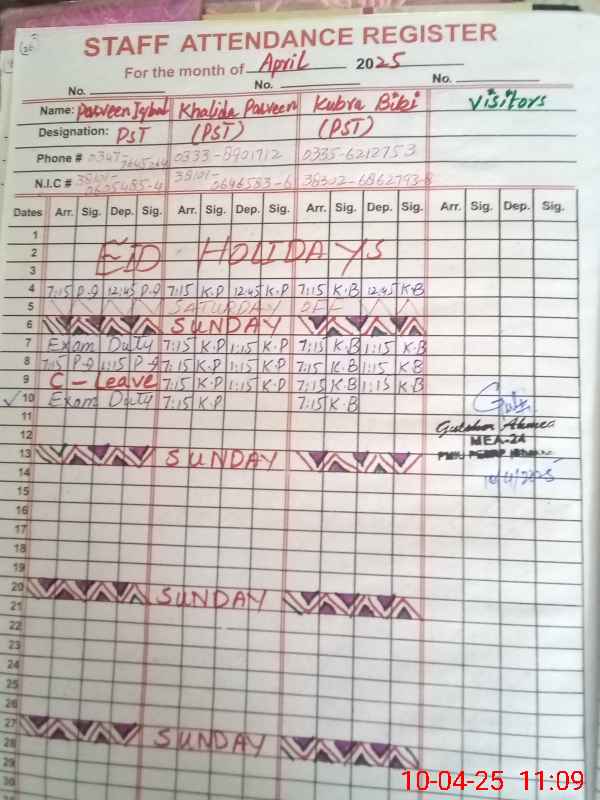 STAFF ATTENDANCE REGISTER
For the month of April 2025
No. No. No.
Name: Parveen Iqbal Khalida Parveen Kubra Bibi Visitors
Designation: PST (PST) (PST)
Phone # 0333-8901712 0335-6212753
N.I.C # 38101- 38101- 38302-6862793-8
0646583-6
Dates Arr. Sig. Dep. Sig. Arr. Sig. Dep. Sig. Arr. Sig. Dep. Sig. Arr. Sig. Dep. Sig.
1
2 EID HOLIDAYS
3
4 7:15 P.I 12:45 P.I 7:15 K.P 12:45 K.P 7:15 K.B 12:45 K.B
5 SATURDAY OFF
6 SUNDAY
7 Exam Duty 7:15 K.P 1:15 K.P 7:15 K.B 1:15 K.B
8 7:15 P.I 1:15 P.I 7:15 K.P 1:15 K.P 7:15 K.B 1:15 K.B
9 C-Leave 7:15 K.P 1:15 K.P 7:15 K.B 1:15 K.B
10 Exam Duty 7:15 K.P 7:15 K.B
11
12 MEA-24
13 SUNDAY
14 10/4/2025
15
16
17
18
19
20 SUNDAY
21
22
23
24
25
26
27 SUNDAY
28
29
30
10-04-25 11:09